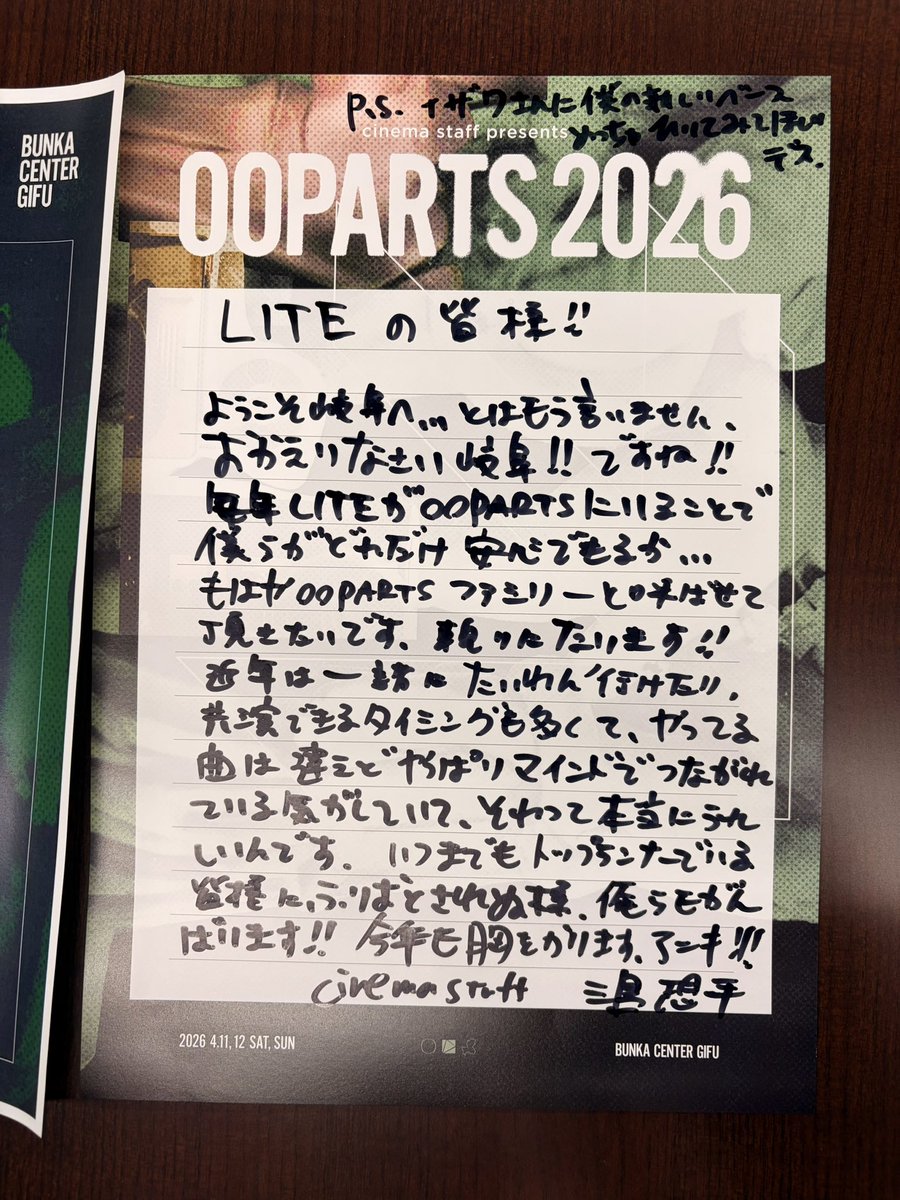 BUNKA
CENTER
GIFU
P.S. イザワさんに僕の新しいベース
めっちゃ ひいてみてほしい
デス.
cinema staff presents
OOPARTS 2026
LITE の 皆 様!!
ようこそ岐阜へ... とはもう言いません、
おかえりなさい 岐阜!! ですね!!
毎年 LITEが OOPARTS にいることで
僕らがどれだけ 安心できるか...
もはや OOPARTS ファミリーと呼ばせて
頂きたいです、頼りにしています!!
近年は一緒に たいわん行けたり、
共演できるタイミングも多くて、やってる
曲は 違えど やっぱりマインドでつながれ
ている気がしていて、それって本当にうれ
しいんです. いつまでもトップランナーでいる
皆様に、ふりおとされぬ様、俺らもがん
ばります!! 今年も胸をかります、アニキ!!!
cinema staff 三島想平
2026 4.11, 12 SAT, SUN
BUNKA CENTER GIFU